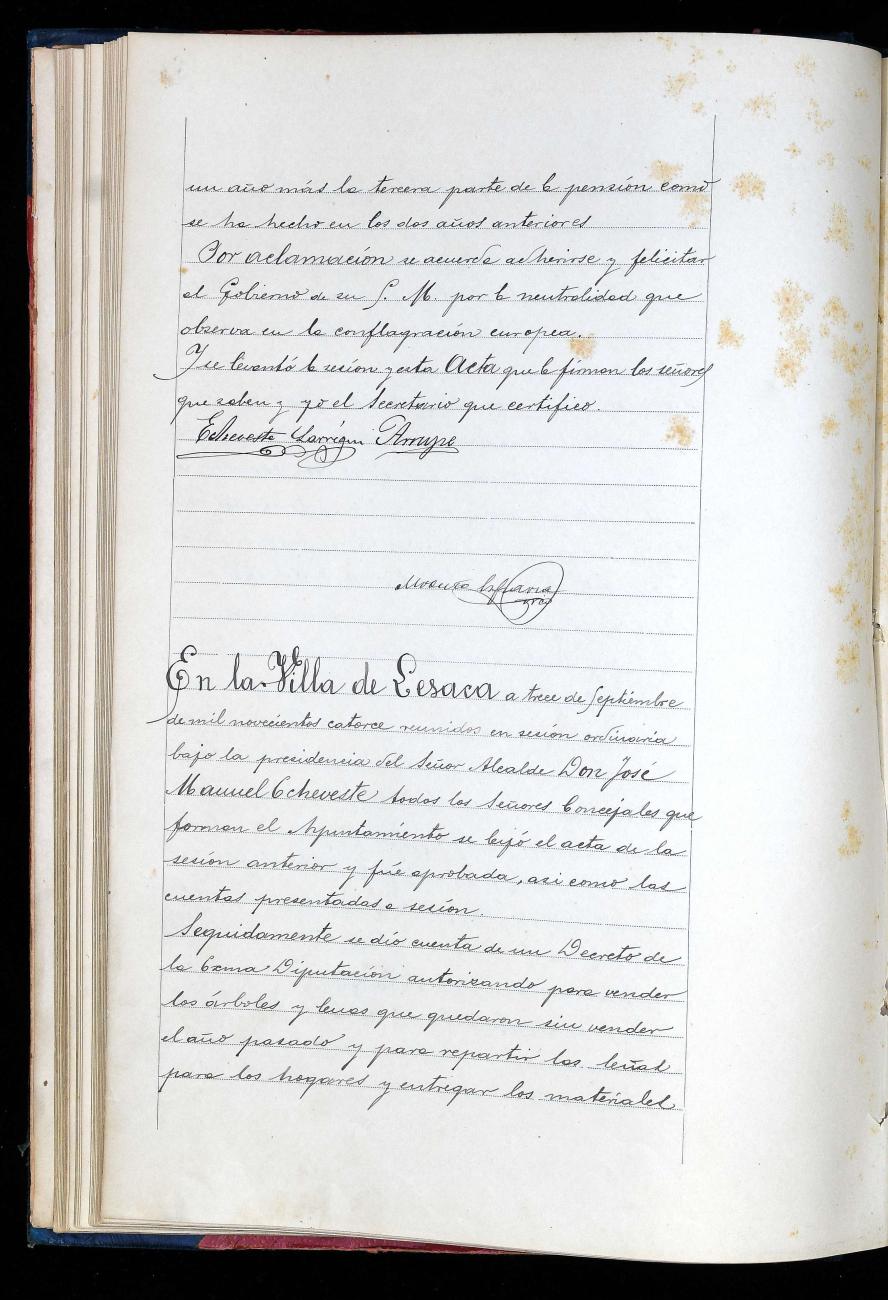 un año más la tercera parte de la pensión como
se ha hecho en los dos años anteriores
Por aclamación se acuerda adherirse y felicitar
al Gobierno de su S. M. por la neutralidad que
observa en la conflagración europea.
Y se levantó la sesión y esta Acta que la firman los señores
que saben y yo el Secretario que certifico.
Echeveste Larregui Arruyo
En la Villa de Lesaca a trece de Septiembre
de mil novecientos catorce reunidos en sesión ordinaria
bajo la presidencia del Señor Alcalde Don José
Manuel Echeveste todos los Señores Concejales que
forman el Ayuntamiento se leyó el acta de la
sesión anterior y fué aprobada, asi como las
cuentas presentadas a sesión.
Seguidamente se dió cuenta de un Decreto de
la Exma Diputación autorizando para vender
los árboles y leñas que quedaron sin vender
el año pasado y para repartir las leñas
para los hogares y entregar los materiales